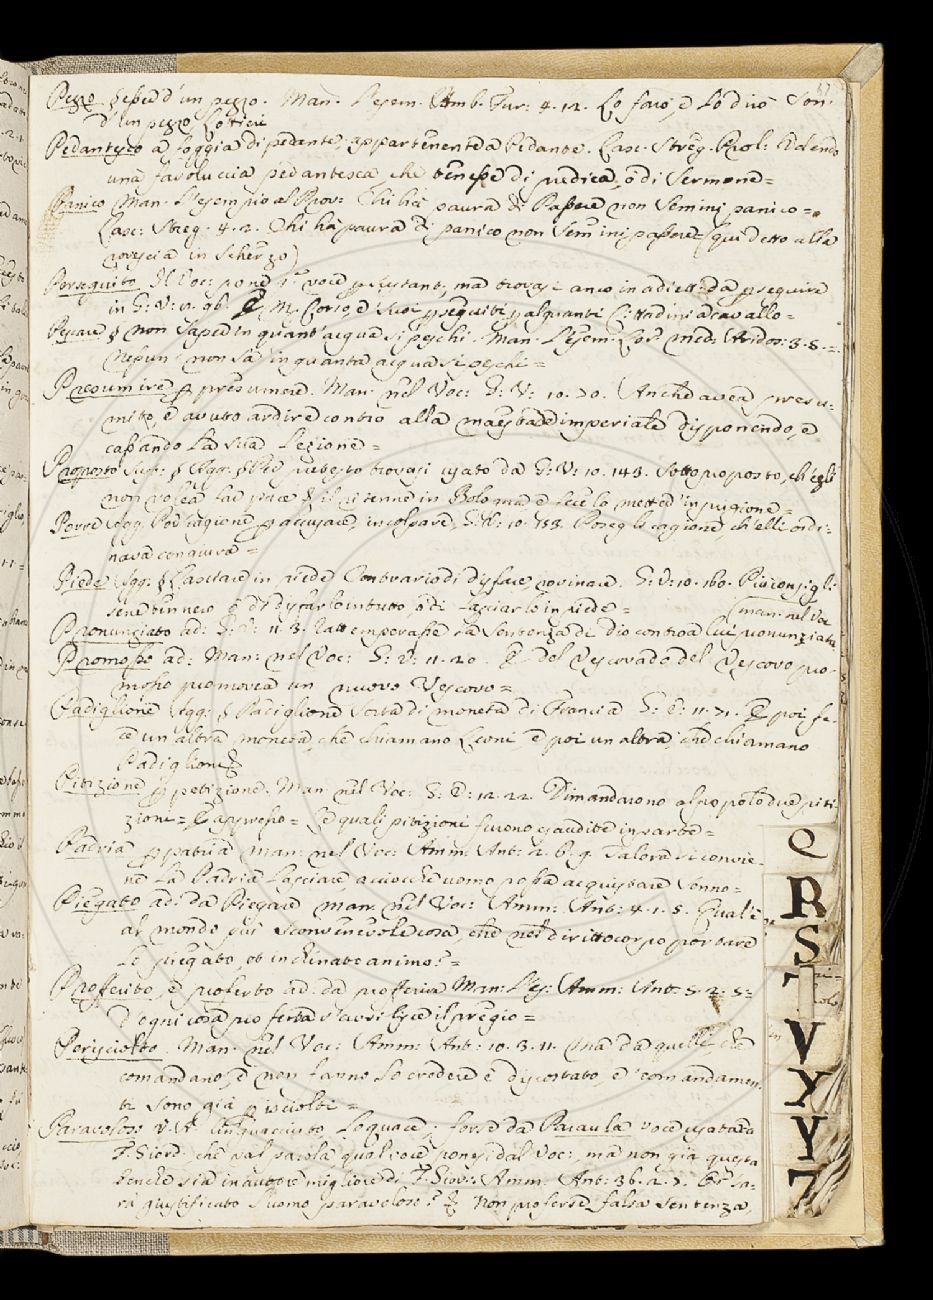 87
Pezzo § esser d'un pezzo. Man. l'esem. Amb. Fur: 4. 12. Lo farò, e lo dirò son
d'un pezzo
Pedantesco a foggia di pedante, appartenente a Pedante. Lasc. Streg. Prol: volendo
una favoluccia pedantesca che tenesse di predica, o di sermone =
Panico Man. l'esempio al Prov: Chi ha paura di Passere non semini panico =
Lasc: Streg. 4. 2. Chi ha paura di panico non semini passere (qui detto alla
rovescia in scherzo)
Perseguito. Il Voc: pone voce per sustant, ma trovasi anco in adiett: da perseguire
in G: V: M. Corso, e suoi perseguiti alquanti Cittadini a cavallo =
Pescare § non saper in quant' acqua si peschi. Man. l'esem. Lor. med: Aridos: 3. 5. =
Nessun non sa in quanta acqua si peschi =
Presumire per presumere. Man. nel Voc: G: V: 10. 70. Anche avea presu-
mito, e avuto ardire contro alla maestade imperiale disponendo, e
cassando la sua Lezione =
Proposto trovasi usato da G: V: 10. 143. Sotto proposto, ch'egli
non volea far pace il ritenne in Bologna e fecelo mettere in prigione =
Porre Agg. Por cagione per accusare, incolpare, G: V: 10. Poseglie cagione, ch'elli ordi-
nava congiura =
Piede Agg: § Lasciare in piede Contrario di disfare, rovinare. G: V: 10. 160. Più consigli
se ne tennero o di disfarlo in tutto, o di lasciarlo in piede =
(man. nel Voc
Pronunziato ad: G: V: 11. 3. Rattemperasse la sentenza di dio contro a lui pronunziata
Promosso ad: Man: nel Voc: G: V: 11. 20. E del Vescovado del Vescovo pro-
mosso promovea un nuovo Vescovo =
Padiglione Agg: § Padiglione sorta di moneta di Francia G: V: 11. 71. E poi fe-
ce un altra moneta, che chiamano Leoni, e poi un altra, che chiamano
Padiglioni
Pitizione per petizione. Man nel Voc: G: V: 12. 22. Dimandarono al popolo due piti-
zioni = E appresso = Le quali pitizioni furono esaudite in parte =
Padria per patria Man: nel Voc: Amm: Ant: 2. 6. 9. Talora si convie-
ne la Padria lasciare, acciocche uomo possa acquistare senno =
Piegato ad: da Piegare man. nel Voc: Amm: Ant: 4. 1. 5. Qual è
al mondo più sconvenevole cosa, che nel diritto corpo portare
le piegato, ob inchinato animo? =
Proferito, e proferto ad: da proferire Man: l'es: Amm: Ant: 5. 2. 5:
d'ogni cosa proferta pregio =
Persciolto. Man. nel Voc: Amm: Ant: 10. 3. 11. Ma da quelle che
comandano, e non fanno lo credere è discostato, e' comandamen-
ti sono già persciolti =
Paravoloso v. A. linguacciuto, loquace; forse da Paraula voce usata da
F. Giord. che val parola qual voce ponesi dal Voc:, ma non già questa
benche sia in autore migliore di F. Giov: Amm: Ant: 36. 2. 7. sa-
rà giustificato l'uomo paravoloso? Non proferse falsa sentenza
Q
R
S
T
V
Y
Y
Z